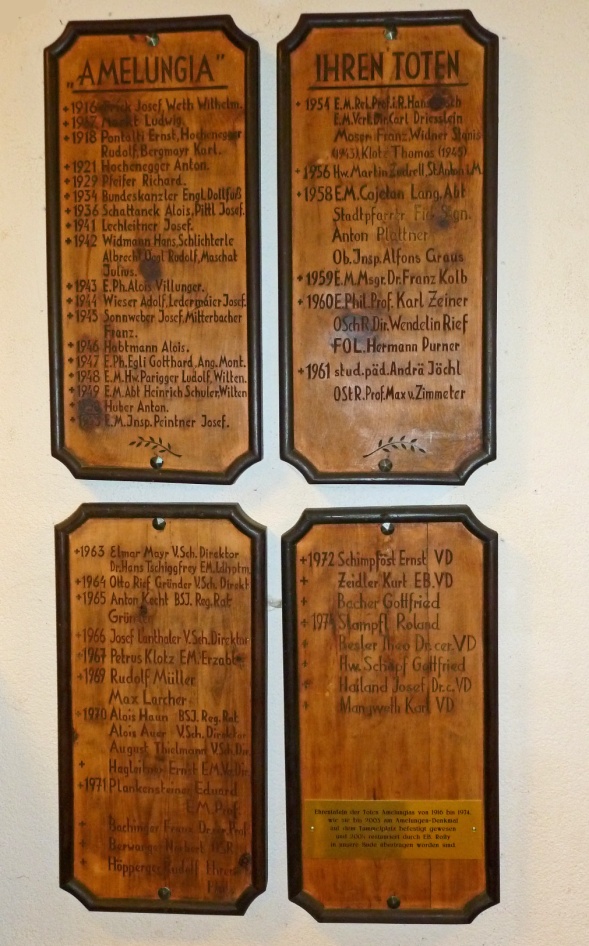 „AMELUNGIA“
+1916 Josef, Weth Wilhelm.
+1917 Ludwig.
+1918 Pontalti Ernst, Hochenegger
Rudolf, Bergmayr Karl.
+1921 Hochenegger Anton.
+1929 Pfeifer Richard.
+1934 Bundeskanzler Engl. Dollfuß
+1936 Schattanek Alois, Pittl Josef.
+1941 Lechleitner Josef.
+1942 Widmann Hans, Schlichterle
Albrecht, Vogl Rudolf, Maschat
Julius.
+1943 E.Ph. Alois Villunger.
+1944 Wieser Adolf, Ledermaier Josef.
+1945 Sonnweber Josef, Mitterbacher
Franz.
+1946 Habtmann Alois.
+1947 E.Ph. Egli Gotthard, Ang. Mont.
+1948 E.M.Hw. Parigger Ludolf, Wilten.
+1949 E.M. Abt Heinrich Schuler, Wilten
Huber Anton.
E.M. Insp. Peintner Josef.
IHREN TOTEN
+1954 E.M. Rel. Prof. i.R.
E.M. Verl. Dir. Carl Driesslein
Moser Franz, Widner
(1943), Klotz Thomas (1945)
+1956 Hw. Martin
+1958 E.M. Cajetan Lang, Abt
Stadtpfarrer
Anton Plattner
Ob. Insp. Alfons Graus
+1959 E.M. Msgr. Dr. Franz Kolb
+1960 E.Phil. Prof. Karl Zeiner
OSchR. Dir. Wendelin Rief
FOL. Hermann Purner
+1961 stud. päd. Andrä Jöchl
OStR. Prof. Max v. Zimmeter
+1963 Elmar Mayr V.Sch. Direktor
Dr. Hans Tschiggfrey EM. Ldhptm.
+1964 Otto Rief Gründer V.Sch. Direkt
+1965 Anton Kecht BSJ. Reg. Rat
Gründer
+1966 Josef Lanthaler V.Sch. Direktor
+1967 Petrus Klotz EM. Erzabt
+1969 Rudolf Müller
Max Larcher
+1970 Alois Haun BSJ. Reg. Rat
Alois Auer V.Sch. Direktor
August Thielmann V.Sch. Dir.
+ Ernst E.M.
+1971 Plankensteiner Eduard
E.M. Prof.
+ Bachinger Franz Prof.
+ Berwanger
+ Höpperger Rudolf
+1972 Schimpföst Ernst VD
+ Zeidler Kurt EB. VD
+ Bacher Gottfried
+ Stampfl Roland
+ Besler Theo Dr. cer. VD
+ Hw. Schöpf Gottfried
+ Hailand Josef Dr. c. VD
+ Karl VD
Ehrentafeln der Toten Amelungias von 1916 bis 1974,
wie sie bis 2003 am Amelungen-Denkmal
auf dem Tummelplatz befestigt gewesen
und 2005 restauriert durch EB.
in unsere Bude übertragen worden sind.